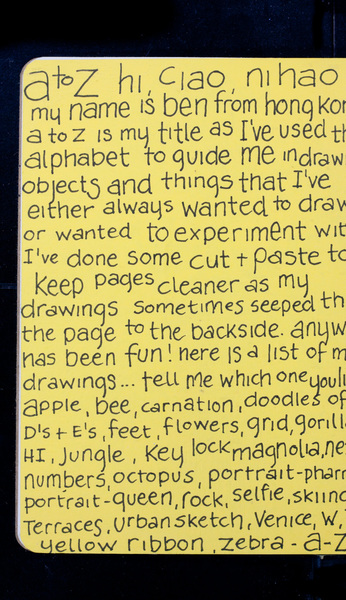 a to Z hi, ciao, nihao
my name is ben from hong kon
a to z is my title as I've used th
alphabet to guide me in draw
objects and things that I've
either always wanted to draw
or wanted to experiment wit
I've done some cut + paste to
keep pages cleaner as my
drawings sometimes seeped th
the page to the backside. anyw
has been fun! here is a list of m
drawings... tell me which one youli
apple, bee, carnation, doodles of
D's + E's, feet, flowers, grid, gorill
HI, Jungle, Key lock magnolia, ne
numbers, octopus, portrait-phar
portrait-queen, rock, selfie, skiing
Terraces, urban sketch, Venice, W,
yellow ribbon, zebra - a-z